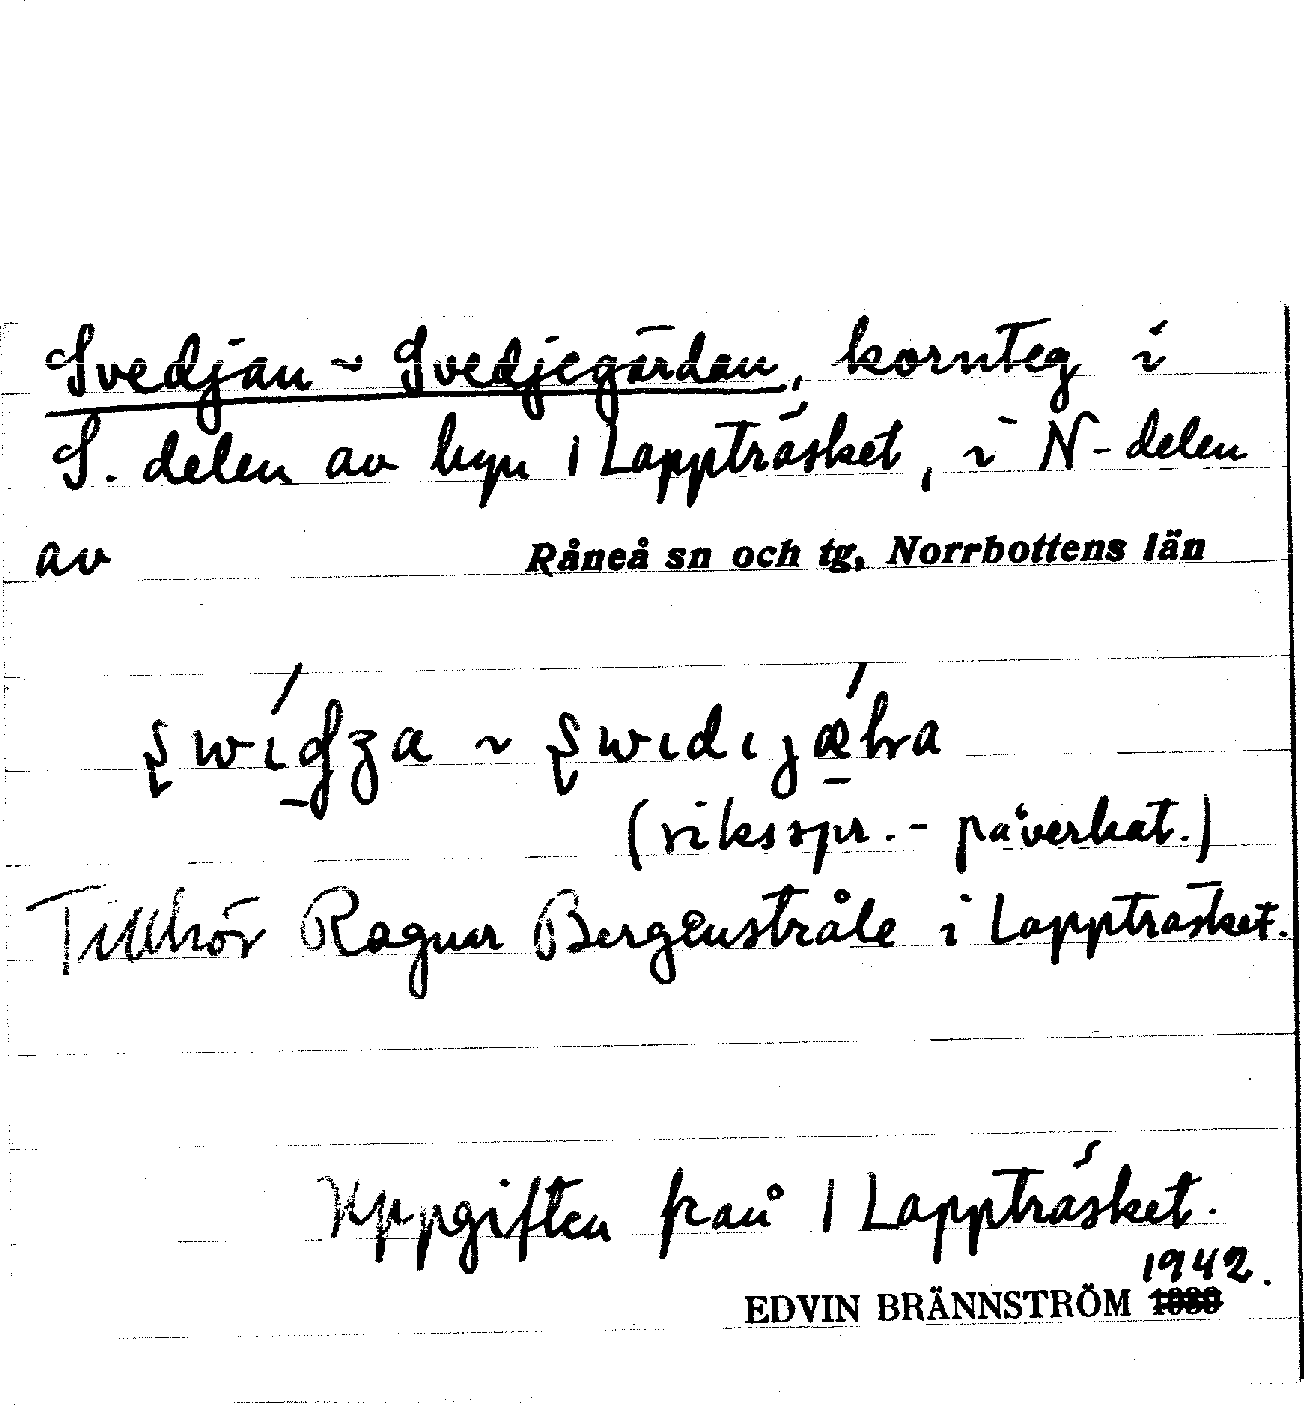 Svedjan ~ Svedjegärdan, kornteg i
S. delen av byn 1 Lappträsket, i N-delen
av Råneå sn och tg, Norrbottens län
(riksspr.- påverkat.)
Tillhör Ragnar Bergenstråle i Lappträsket.
Uppgiften från 1 Lappträsket.
1942.
EDVIN BRÄNNSTRÖM